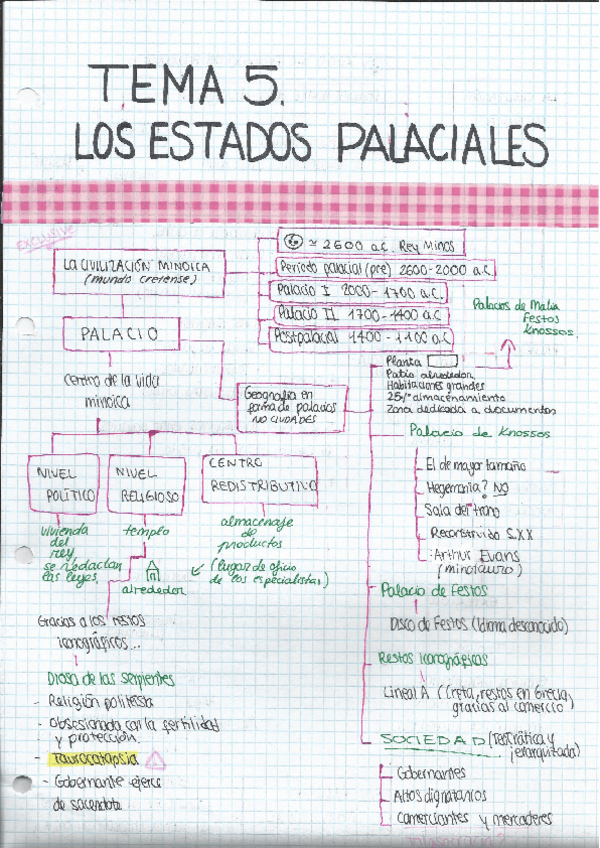 TEMA 5.
LOS ESTADOS PALACIALES
LA CIVILIZACIÓN MINOICA
(mundo cretense)
≃ 2600 a.C. Rey Minos
Período palacial (pre) 2600-2000 a.C.
Palacio I 2000-1700 a.C.
Palacio II 1700-1400 a.C
Postpalacial 1400-1100 a.C
Palacios de Malia
Festos
Knossos
PALACIO
centro de la vida
minoica
Geografía en
forma de palacios
NO CIUDADES
Planta
Patio alrededor
Habitaciones grandes
25% almacenamiento
Zona dedicada a documentos
NIVEL
POLÍTICO
NIVEL
RELIGIOSO
CENTRO
REDISTRIBUTIVO
vivienda
del
rey
se redactan
las leyes
templo
alrededor
almacenaje
de
productos
(lugar de oficio
de los especialistas)
Palacio de Knossos
El de mayor tamaño
Hegemonía? NO
Sala del trono
Reconstruido S.XX
Arthur Evans
(minotauro)
Palacio de Festos
Disco de Festos (Idioma desconocido)
Restos iconográficos
Lineal A (Creta, restos en Grecia,
gracias al comercio)
SOCIEDAD (Teocrática y
jerarquizada)
Gobernantes
Altos dignatarios
Comerciantes y mercaderes
Gracias a los restos
iconográficos...
Diosa de las serpientes
- Religión politeista
- Obsesionada con la fertilidad
y protección.
- Taurocatapsia
- Gobernante ejerce
de sacerdote